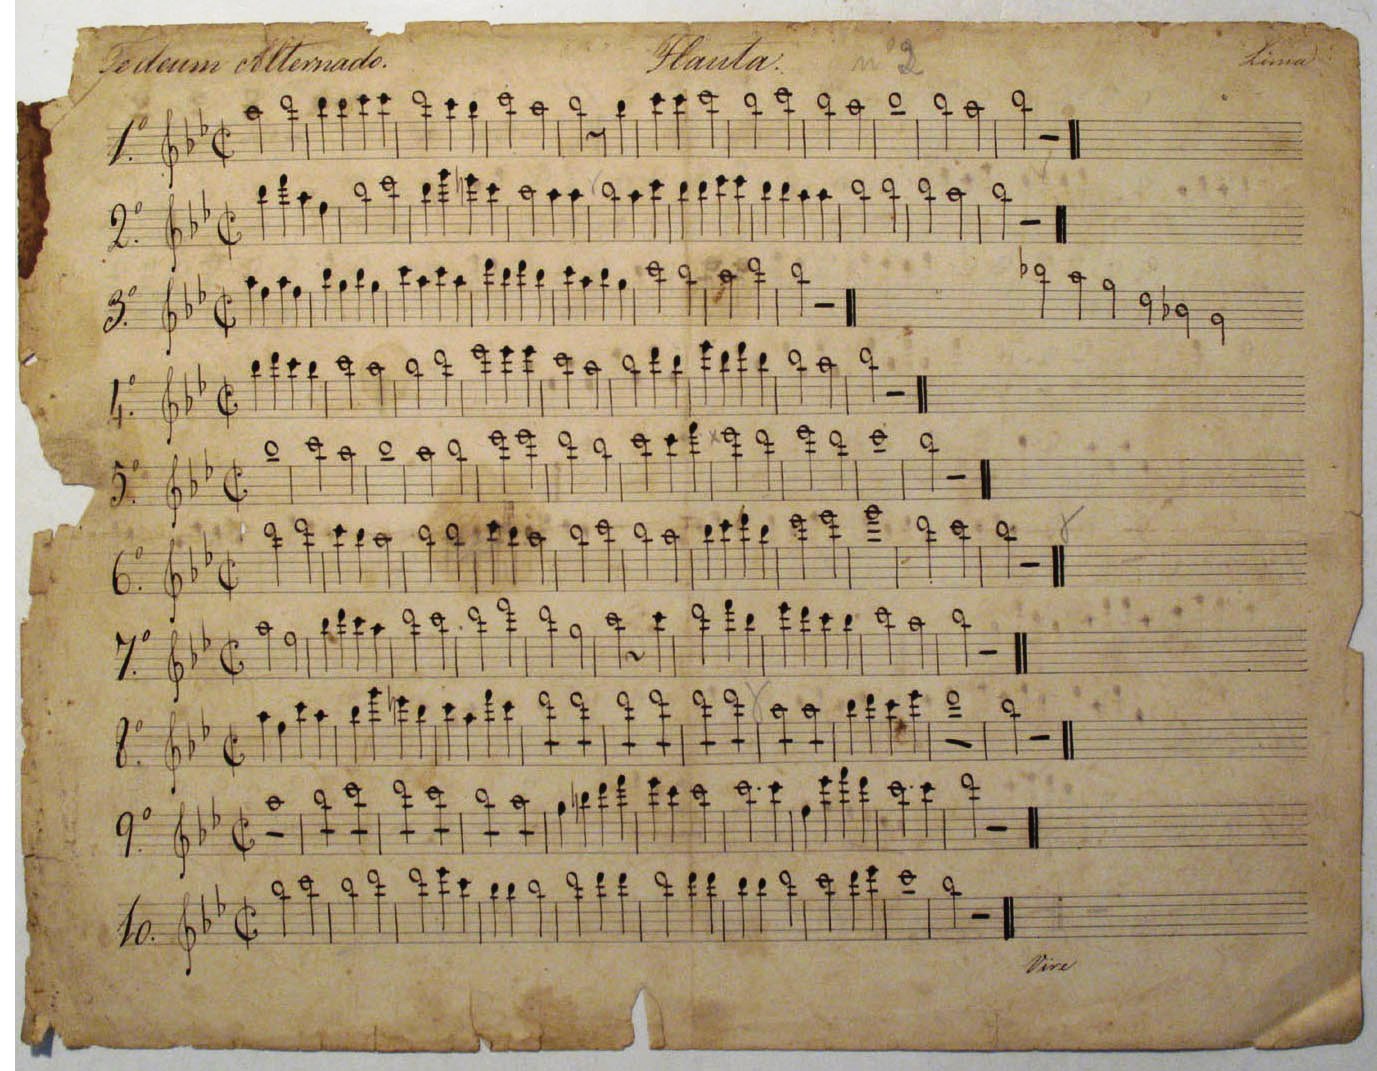 Tedeum Alternado. Flauta. nº 2 Lima
1.º
2.º
3.º
4.º
5.º
6.º
7.º
8.º
9.º
10.
Vire